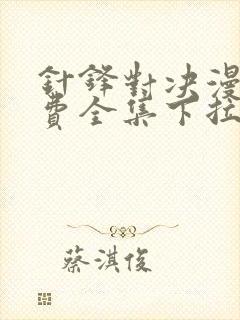 針鋒對决漫
費全集下拉
蔡淇俊